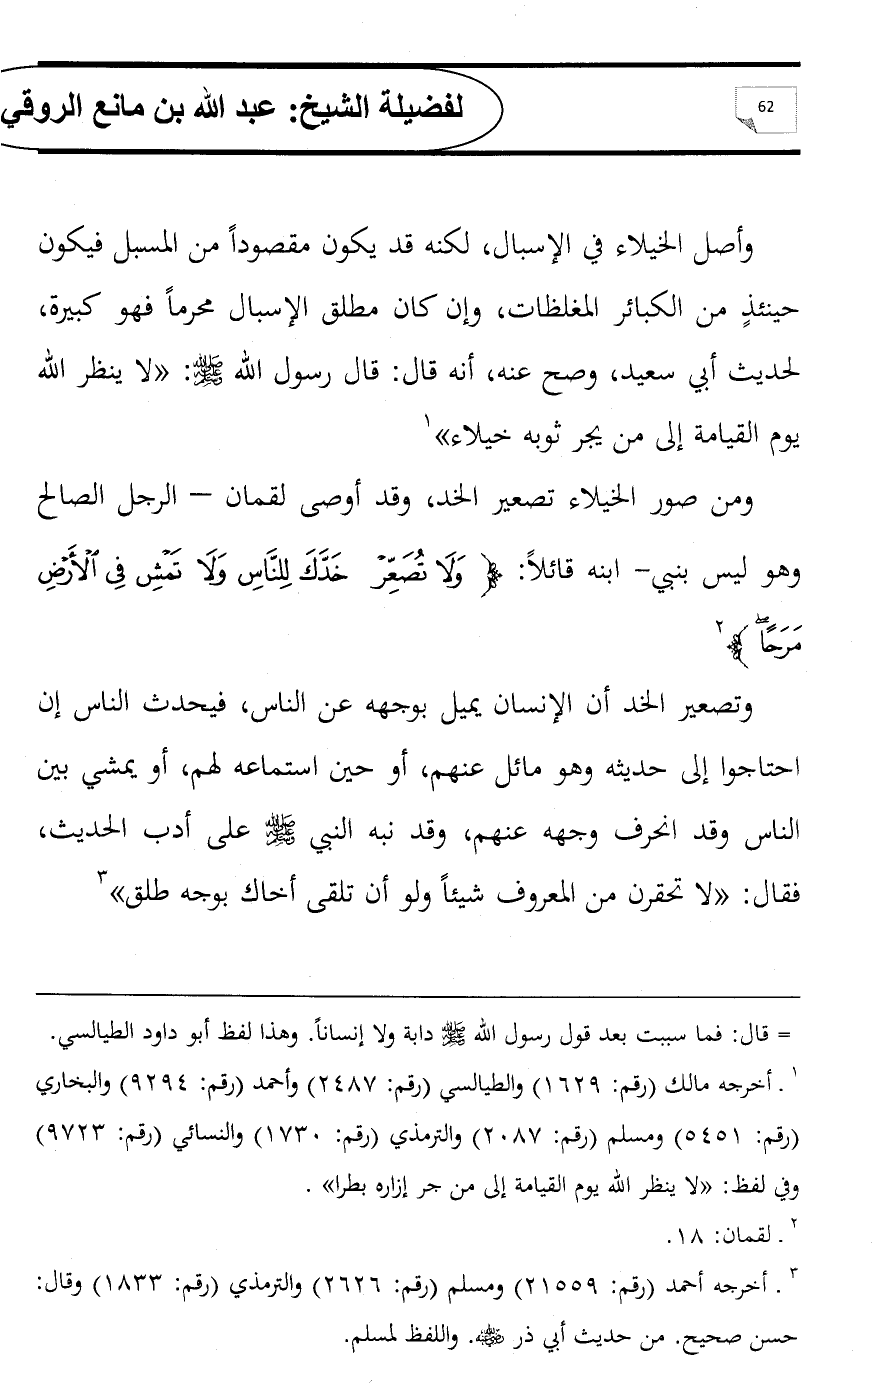 62
لفضيلة الشيخ: عبد الله بن مانع الروقي
وأصل الخيلاء في الإسبال، لكنه قد يكون مقصوداً من المسبل فيكون
حينئذٍ من الكبائر المغلظات، وإن كان مطلق الإسبال محرماً فهو كبيرة،
لحديث أبي سعيد، وصح عنه، أنه قال: قال رسول الله ﷺ: «لا ينظر الله
يوم القيامة إلى من يجر ثوبه خيلاء»١
ومن صور الخيلاء تصعير الخد، وقد أوصى لقمان – الرجل الصالح
وهو ليس بنبي- ابنه قائلاً: ﴿ وَلَا تُصَعِّرْ خَدَّكَ لِلنَّاسِ وَلَا تَمْشِ فِى ٱلْأَرْضِ
مَرَحًا ۖ ﴾٢
وتصعير الخد أن الإنسان يميل بوجهه عن الناس، فيحدث الناس إن
احتاجوا إلى حديثه وهو مائل عنهم، أو حين استماعه لهم، أو يمشي بين
الناس وقد انحرف وجهه عنهم، وقد نبه النبي ﷺ على أدب الحديث،
فقال: «لا تحقرن من المعروف شيئاً ولو أن تلقى أخاك بوجه طلق»٣
= قال: فما سببت بعد قول رسول الله ﷺ دابة ولا إنساناً. وهذا لفظ أبو داود الطيالسي.
١. أخرجه مالك (رقم: ١٦٢٩) والطيالسي (رقم: ٢٤٨٧) وأحمد (رقم: ٩٢٩٤) والبخاري
(رقم: ٥٤٥١) ومسلم (رقم: ٢٠٨٧) والترمذي (رقم: ١٧٣٠) والنسائي (رقم: ٩٧٢٣)
وفي لفظ: «لا ينظر الله يوم القيامة إلى من جر إزاره بطرا» .
٢. لقمان: ١٨.
٣. أخرجه أحمد (رقم: ٢١٥٥٩) ومسلم (رقم: ٢٦٢٦) والترمذي (رقم: ١٨٣٣) وقال:
حسن صحيح. من حديث أبي ذر ﵁. واللفظ لمسلم.